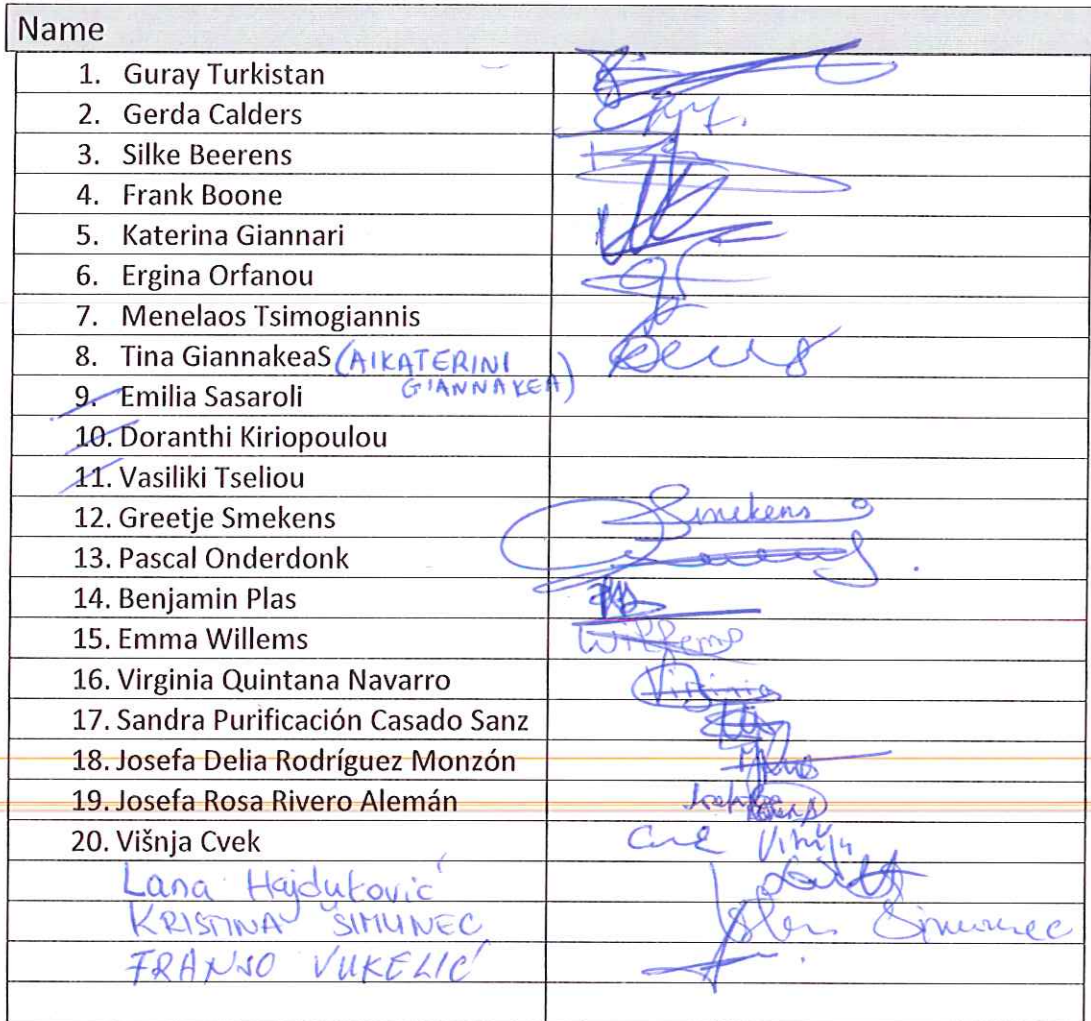 Name
1. Guray Turkistan
2. Gerda Calders
3. Silke Beerens
4. Frank Boone
5. Katerina Giannari
6. Ergina Orfanou
7. Menelaos Tsimogiannis
8. Tina GiannakeaS (AIKATERINI GIANNAKEA)
9. Emilia Sasaroli
10. Doranthi Kiriopoulou
11. Vasiliki Tseliou
12. Greetje Smekens Smekens
13. Pascal Onderdonk
14. Benjamin Plas
15. Emma Willems Willems
16. Virginia Quintana Navarro Virginia
17. Sandra Purificación Casado Sanz
18. Josefa Delia Rodríguez Monzón
19. Josefa Rosa Rivero Alemán
20. Višnja Cvek
Lana Hajduković
KRISTINA ŠIMUNEC Simunec
FRANJO VUKELIĆ